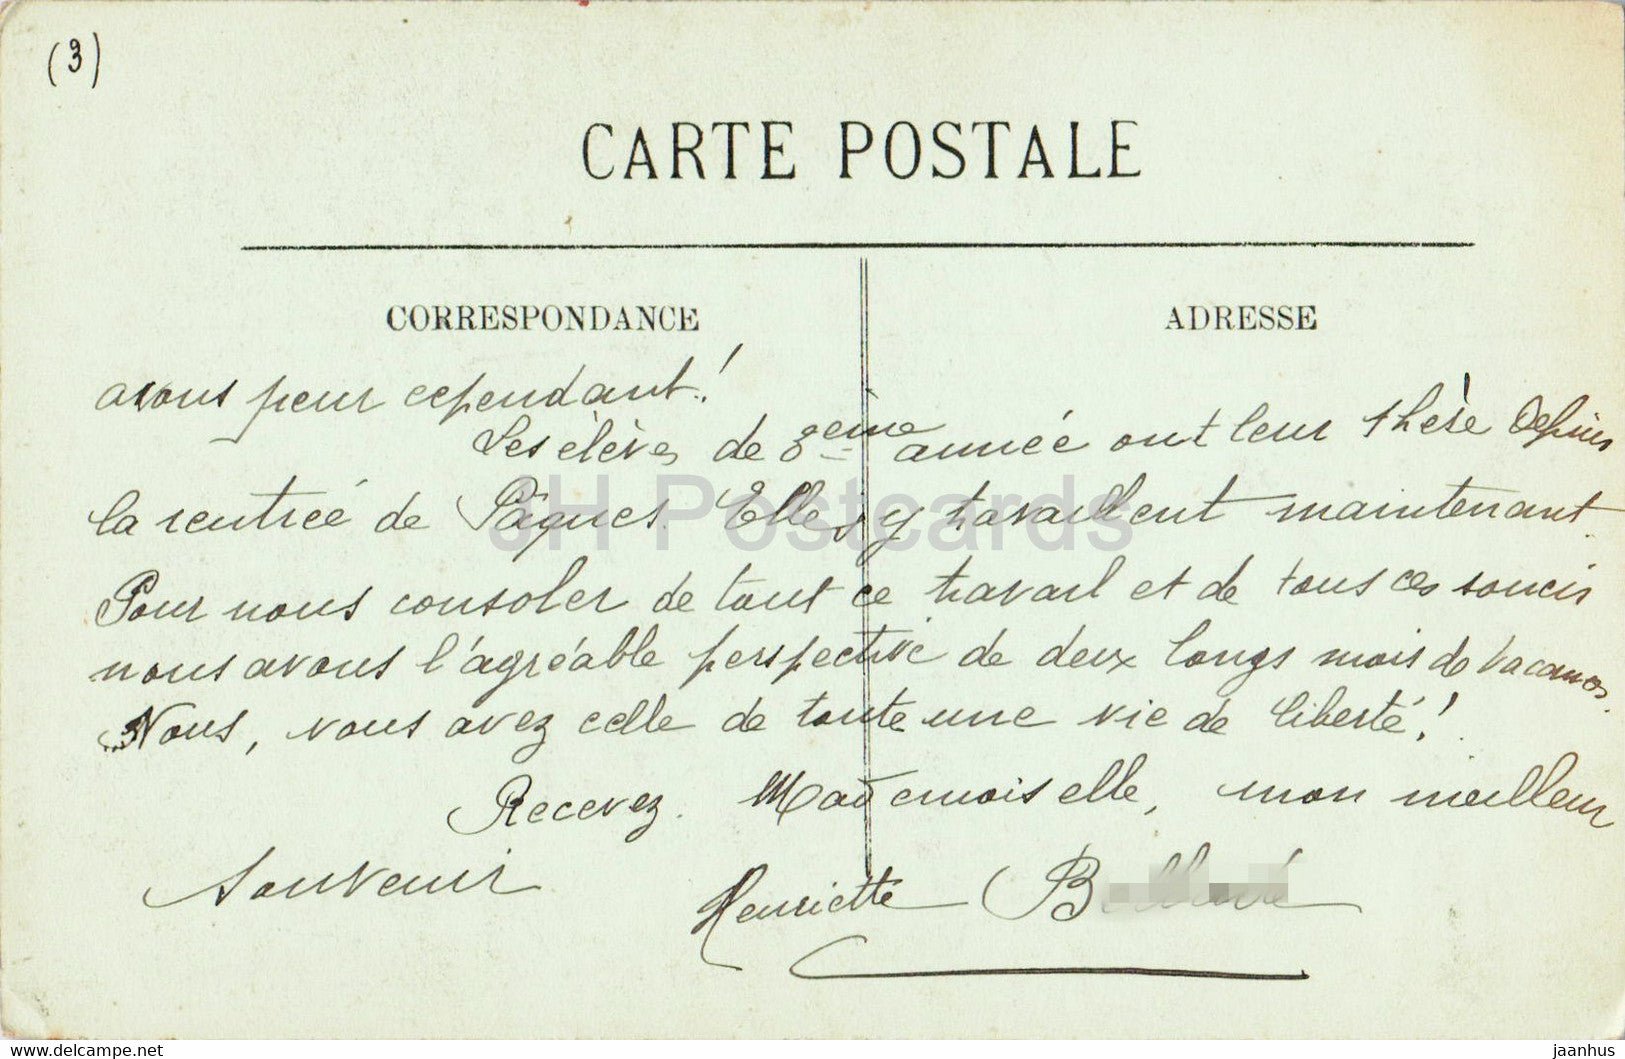 (3)
CARTE POSTALE
CORRESPONDANCE
ADRESSE
avons peur cependant!
Les élèves de 3eme année ont leur thèse depuis
la rentrée de Pâques. Elles y travaillent maintenant.
Pour nous consoler de tout ce travail et de tous ces soucis
nous avons l'agréable perspective de deux longs mois de vacances.
Vous, vous avez celle de toute une vie de liberté!
Recevez. Mademoiselle, mon meilleur
souvenir
Henriette
JH Postcards
www.delcampe.net
jaanhus